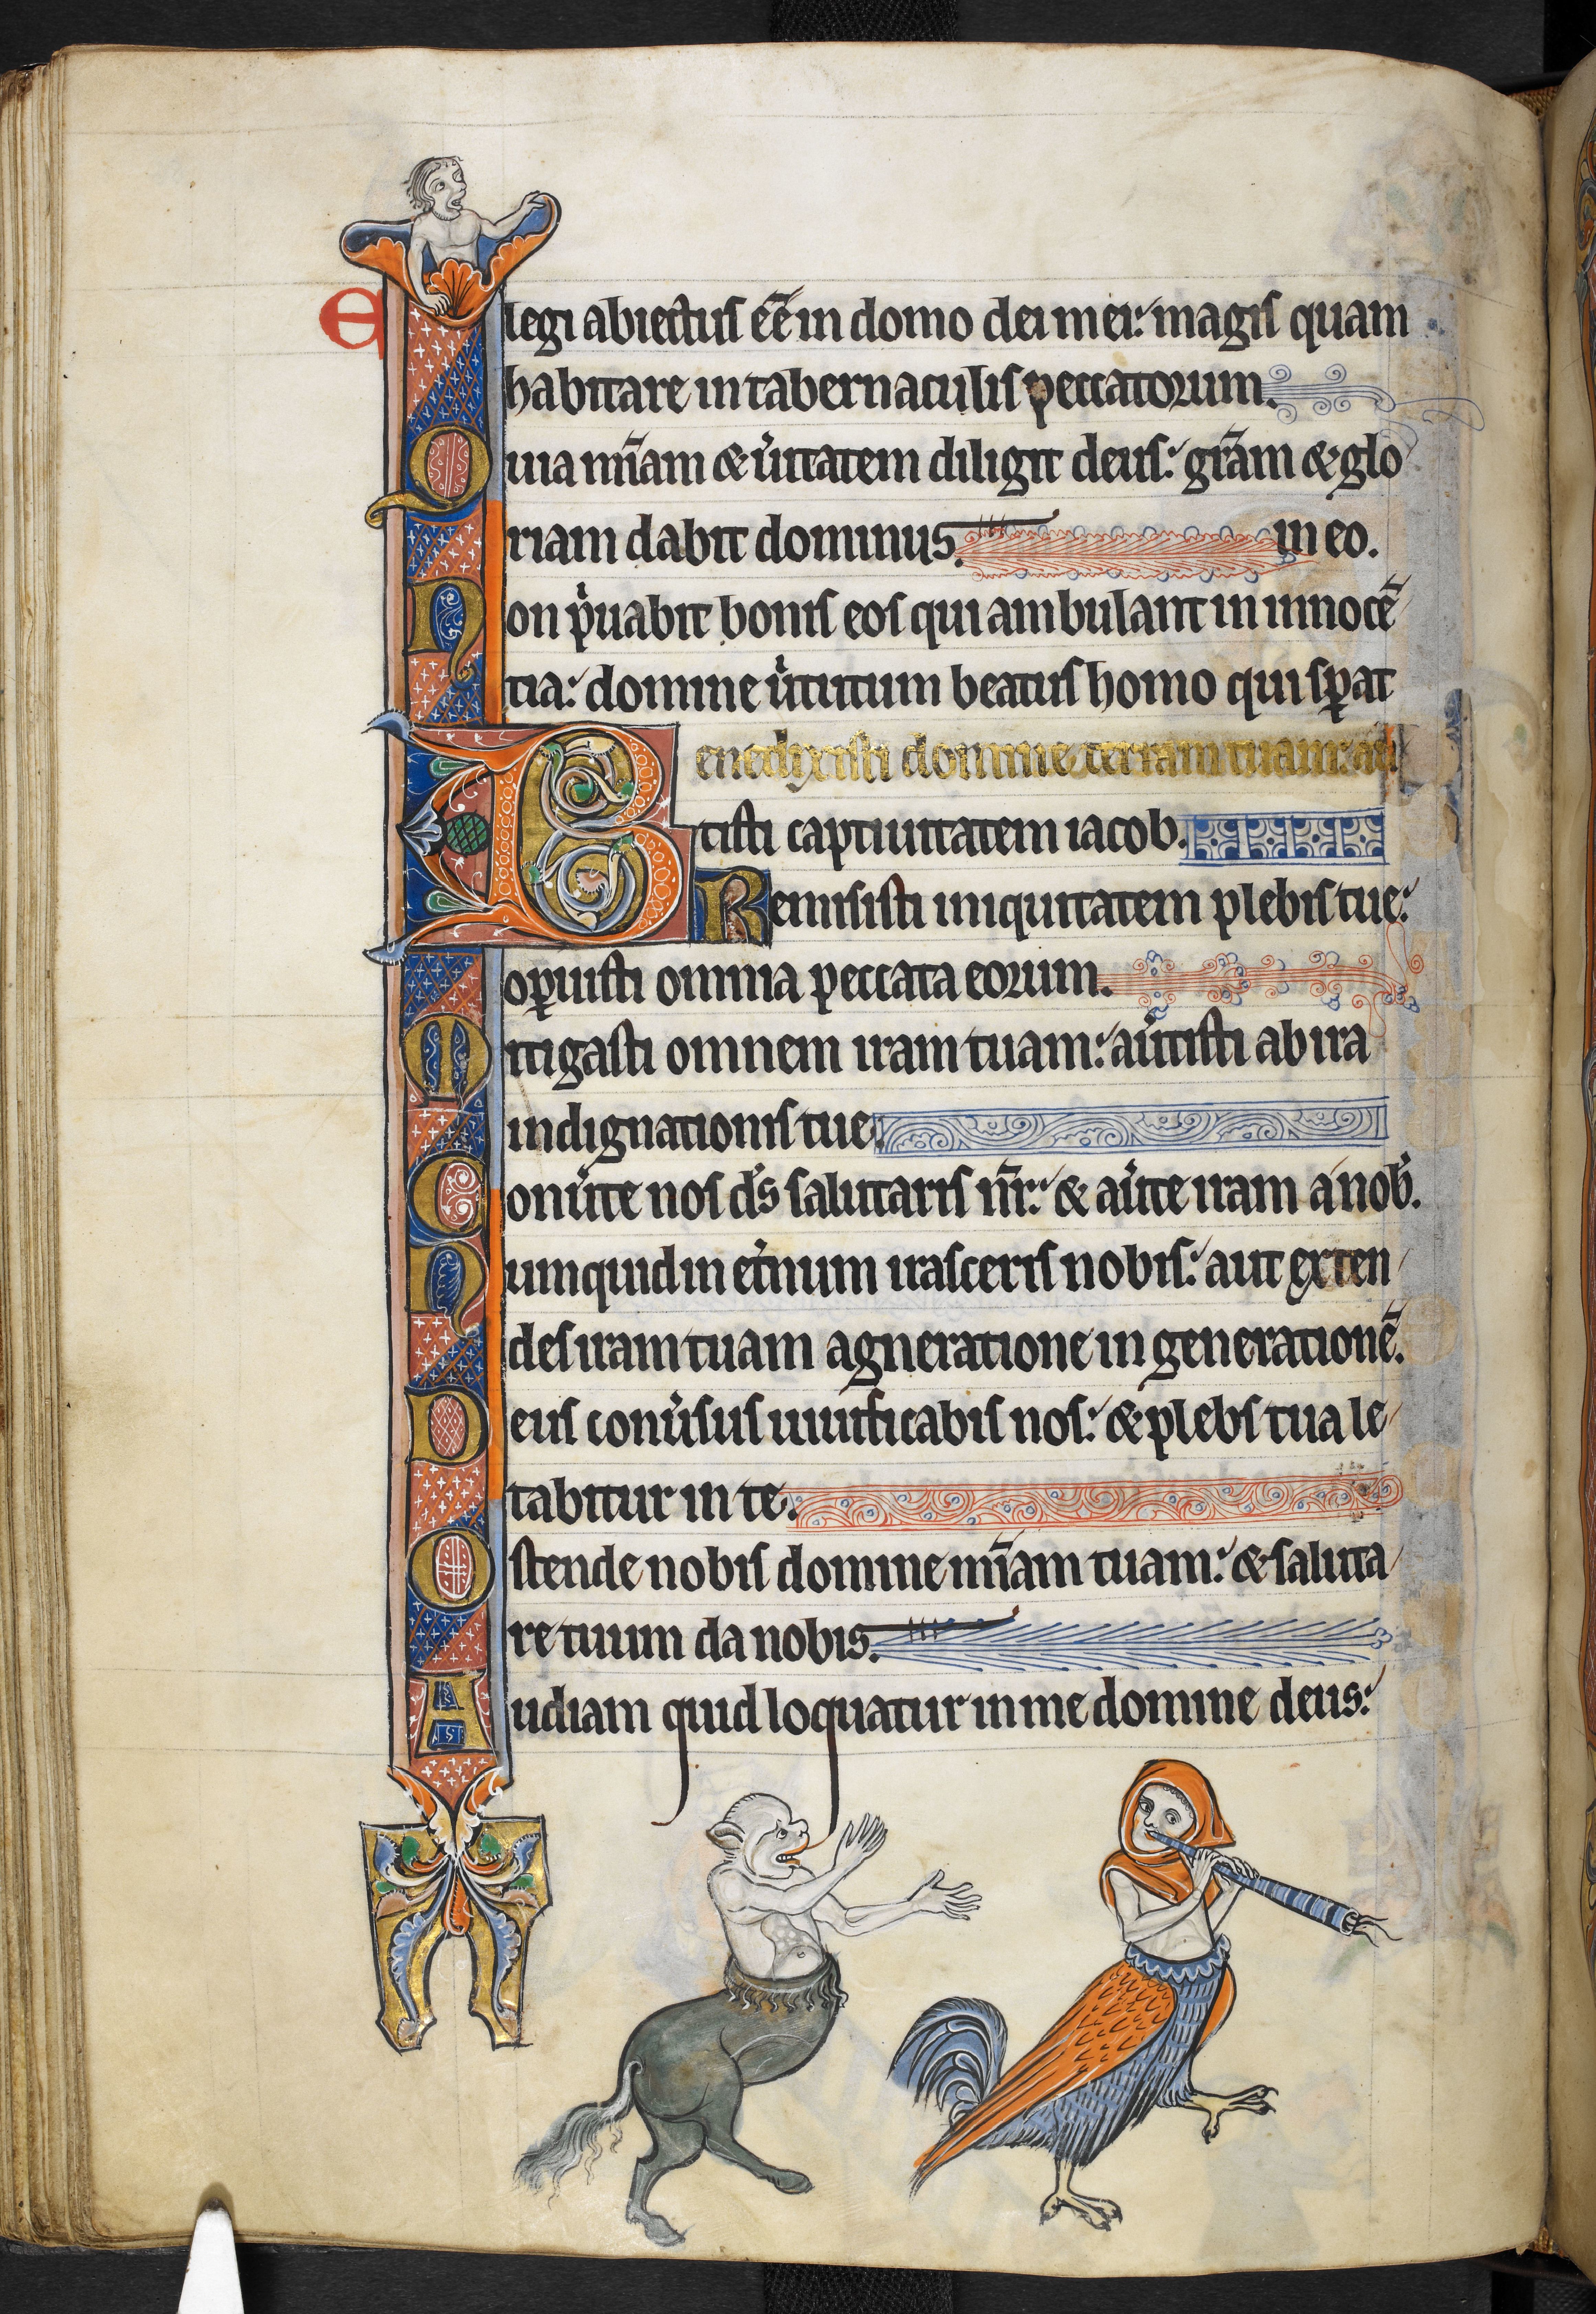 Elegi abiectus eē̄ in domo dei mei: magis quam
habitare in tabernaculis peccatorum.
Quia mīam & u̾itatem diligit deus: grām & glo
riam dabit dominus. in eo.
Non pͥuabit bonis eos qui ambulant in innocē
tia: domine uͥtutum beatus homo qui sꝑat
Benedixisti domine terram tuam: au̾
tisti captiuitatem iacob.
Remisisti iniquitatem plebis tue:
oꝑuisti omnia peccata eorum.
Mitigasti omnem iram tuam: au̾tisti ab ira
indignationis tue.
Conu̾te nos ds̄ salutaris nr̄: & au̾te iram a nob̾.
Numquid in et̾num irasceris nobis: aut exten
des iram tuam a gneratione in generationē.
Deus conu̾sus uiuificabis nos: & plebs tua le
tabitur in te.
Ostende nobis domine mīam tuam: & saluta
re tuum da nobis.
Audiam quid loquatur in me domine deus: